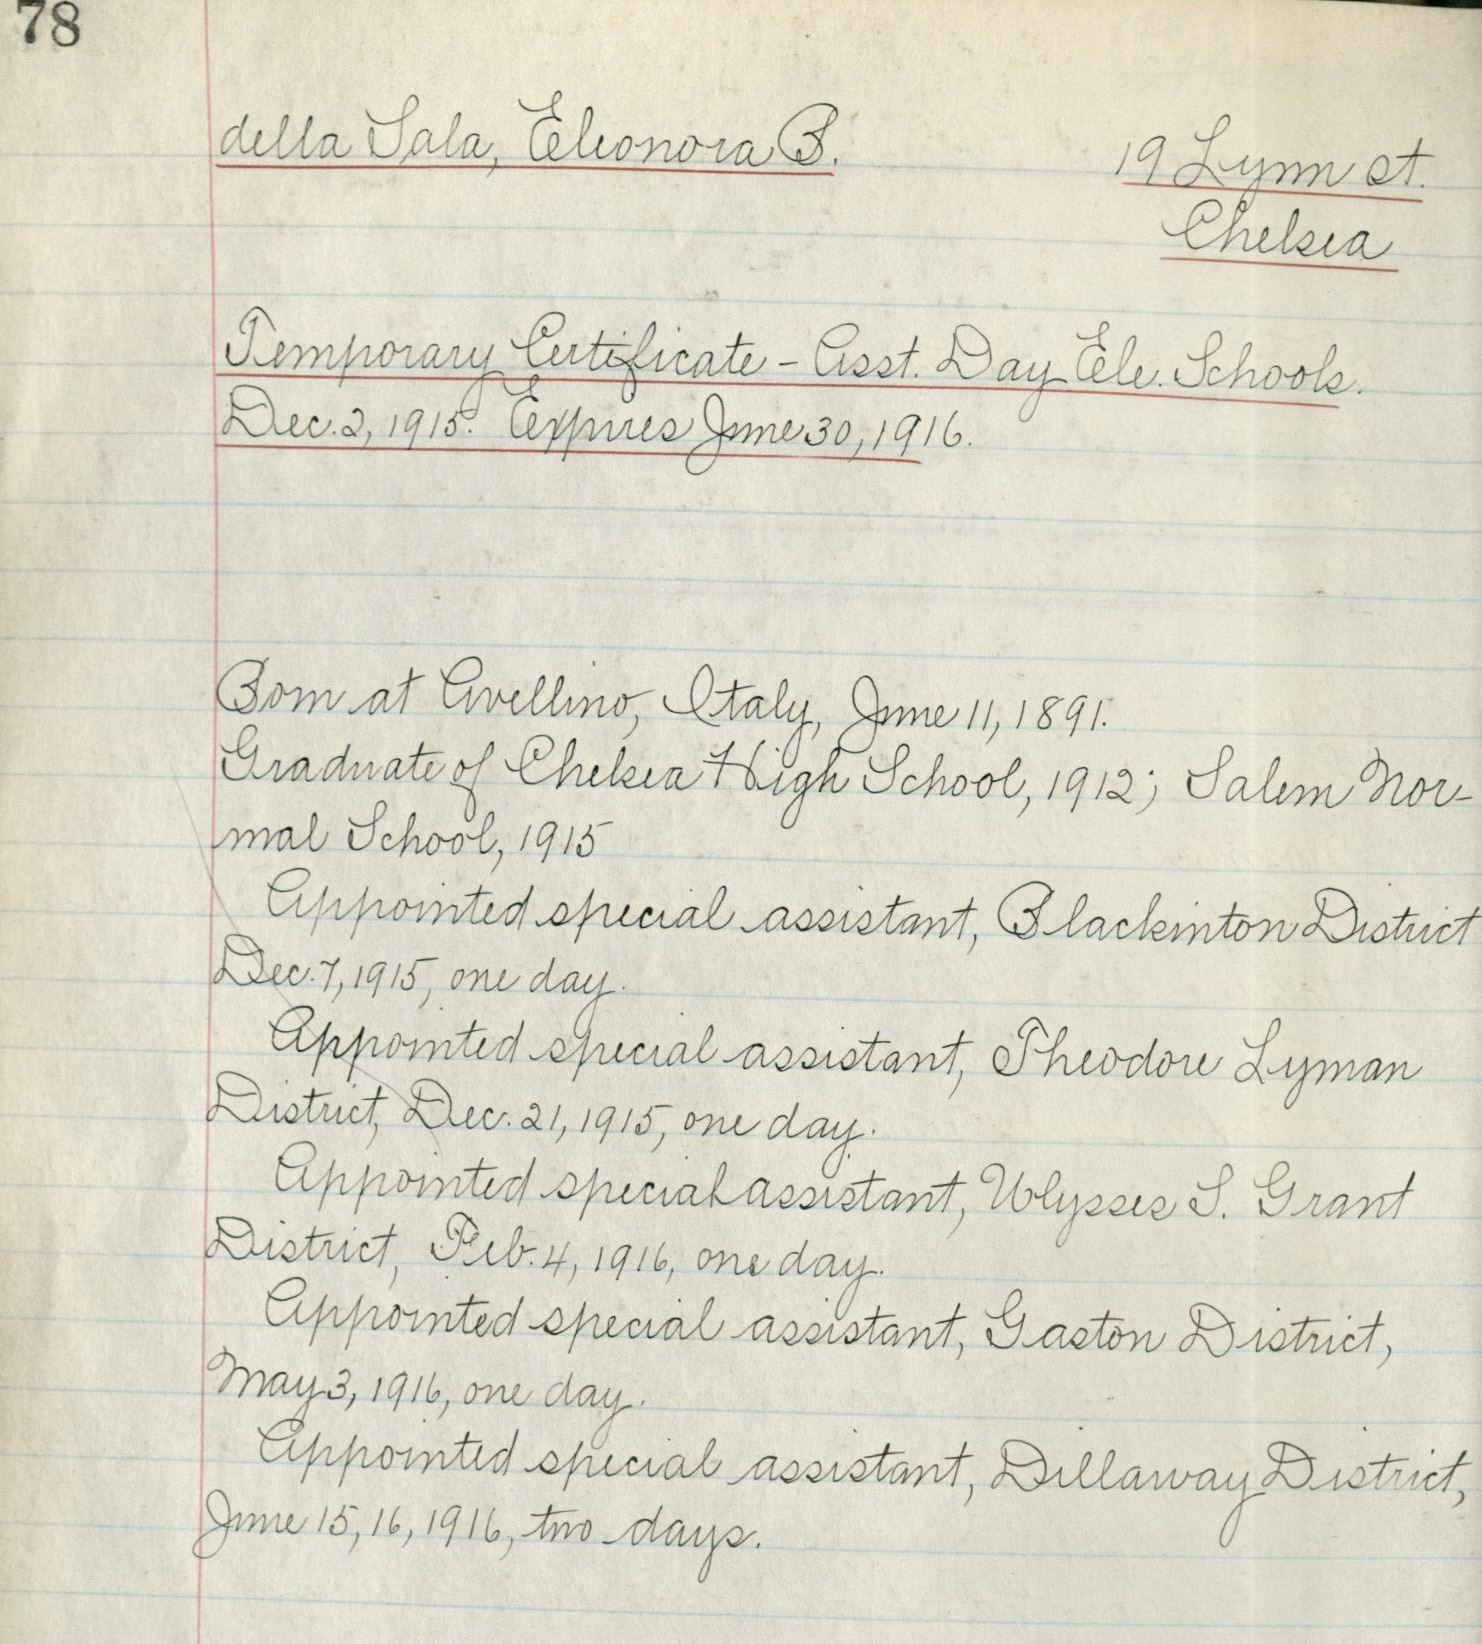 78
della Sala, Eleonora B.
19 Lynn st.
Chelsea
Temporary Certificate - Asst. Day Ele. Schools.
Dec. 2, 1915. Expires June 30, 1916.
Born at Avellino, Italy, June 11, 1891.
Graduate of Chelsea High School, 1912; Salem Nor-
mal School, 1915
Appointed special assistant, Blackinton District
Dec. 7, 1915, one day.
Appointed special assistant, Theodore Lyman
District, Dec. 21, 1915, one day.
Appointed special assistant, Ulysses S. Grant
District, Feb. 4, 1916, one day.
Appointed special assistant, Gaston District,
May 3, 1916, one day.
Appointed special assistant, Dillaway District,
June 15, 16, 1916, two days.